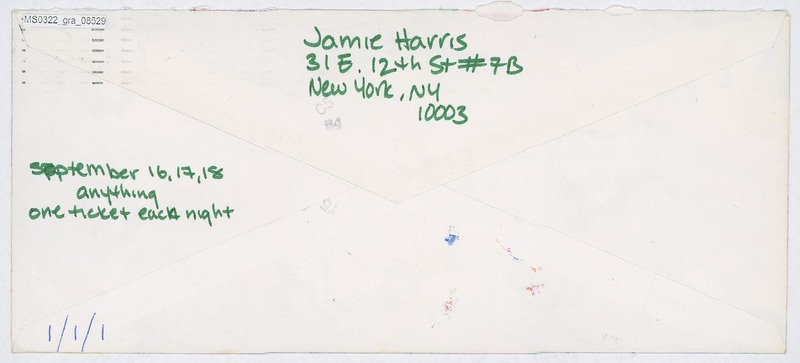 MS0322_gra_08529
Jamie Harris
31 E. 12th St #7B
New York, NY
10003
September 16, 17, 18
anything
one ticket each night
1/1/1